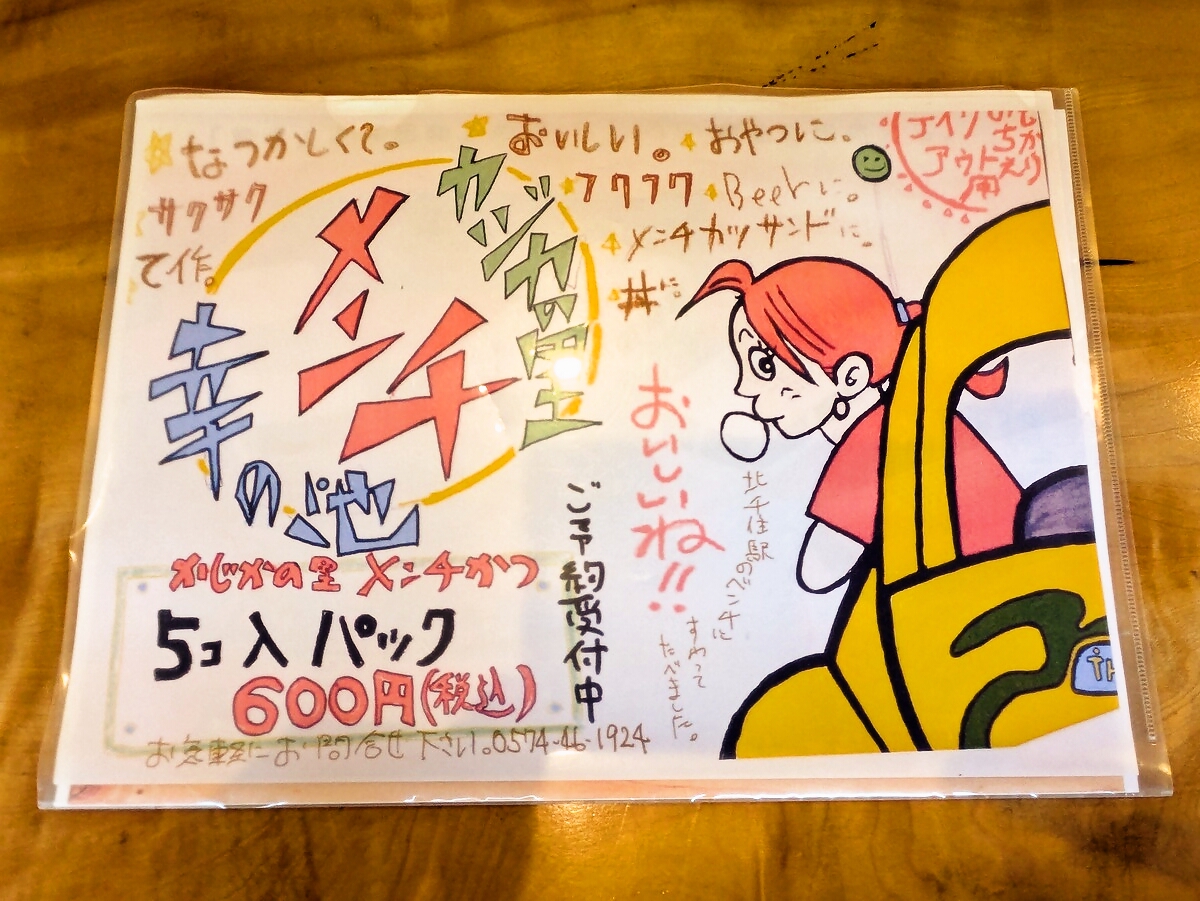 なつかしくて。
サクサク
て作。
おいしい。
フワフワ
おやつに。
Beerに。
メンチカツサンドに。
丼に。
テイク
アウト
用
カジカの里
メンチ
幸の池
おいしいね!!
北千住駅のベンチに
すわって
たべました。
ご予約受付中
かじかの里 メンチかつ
5コ入パック
600円(税込)
お気軽にお問合せ下さい。0574-46-1924